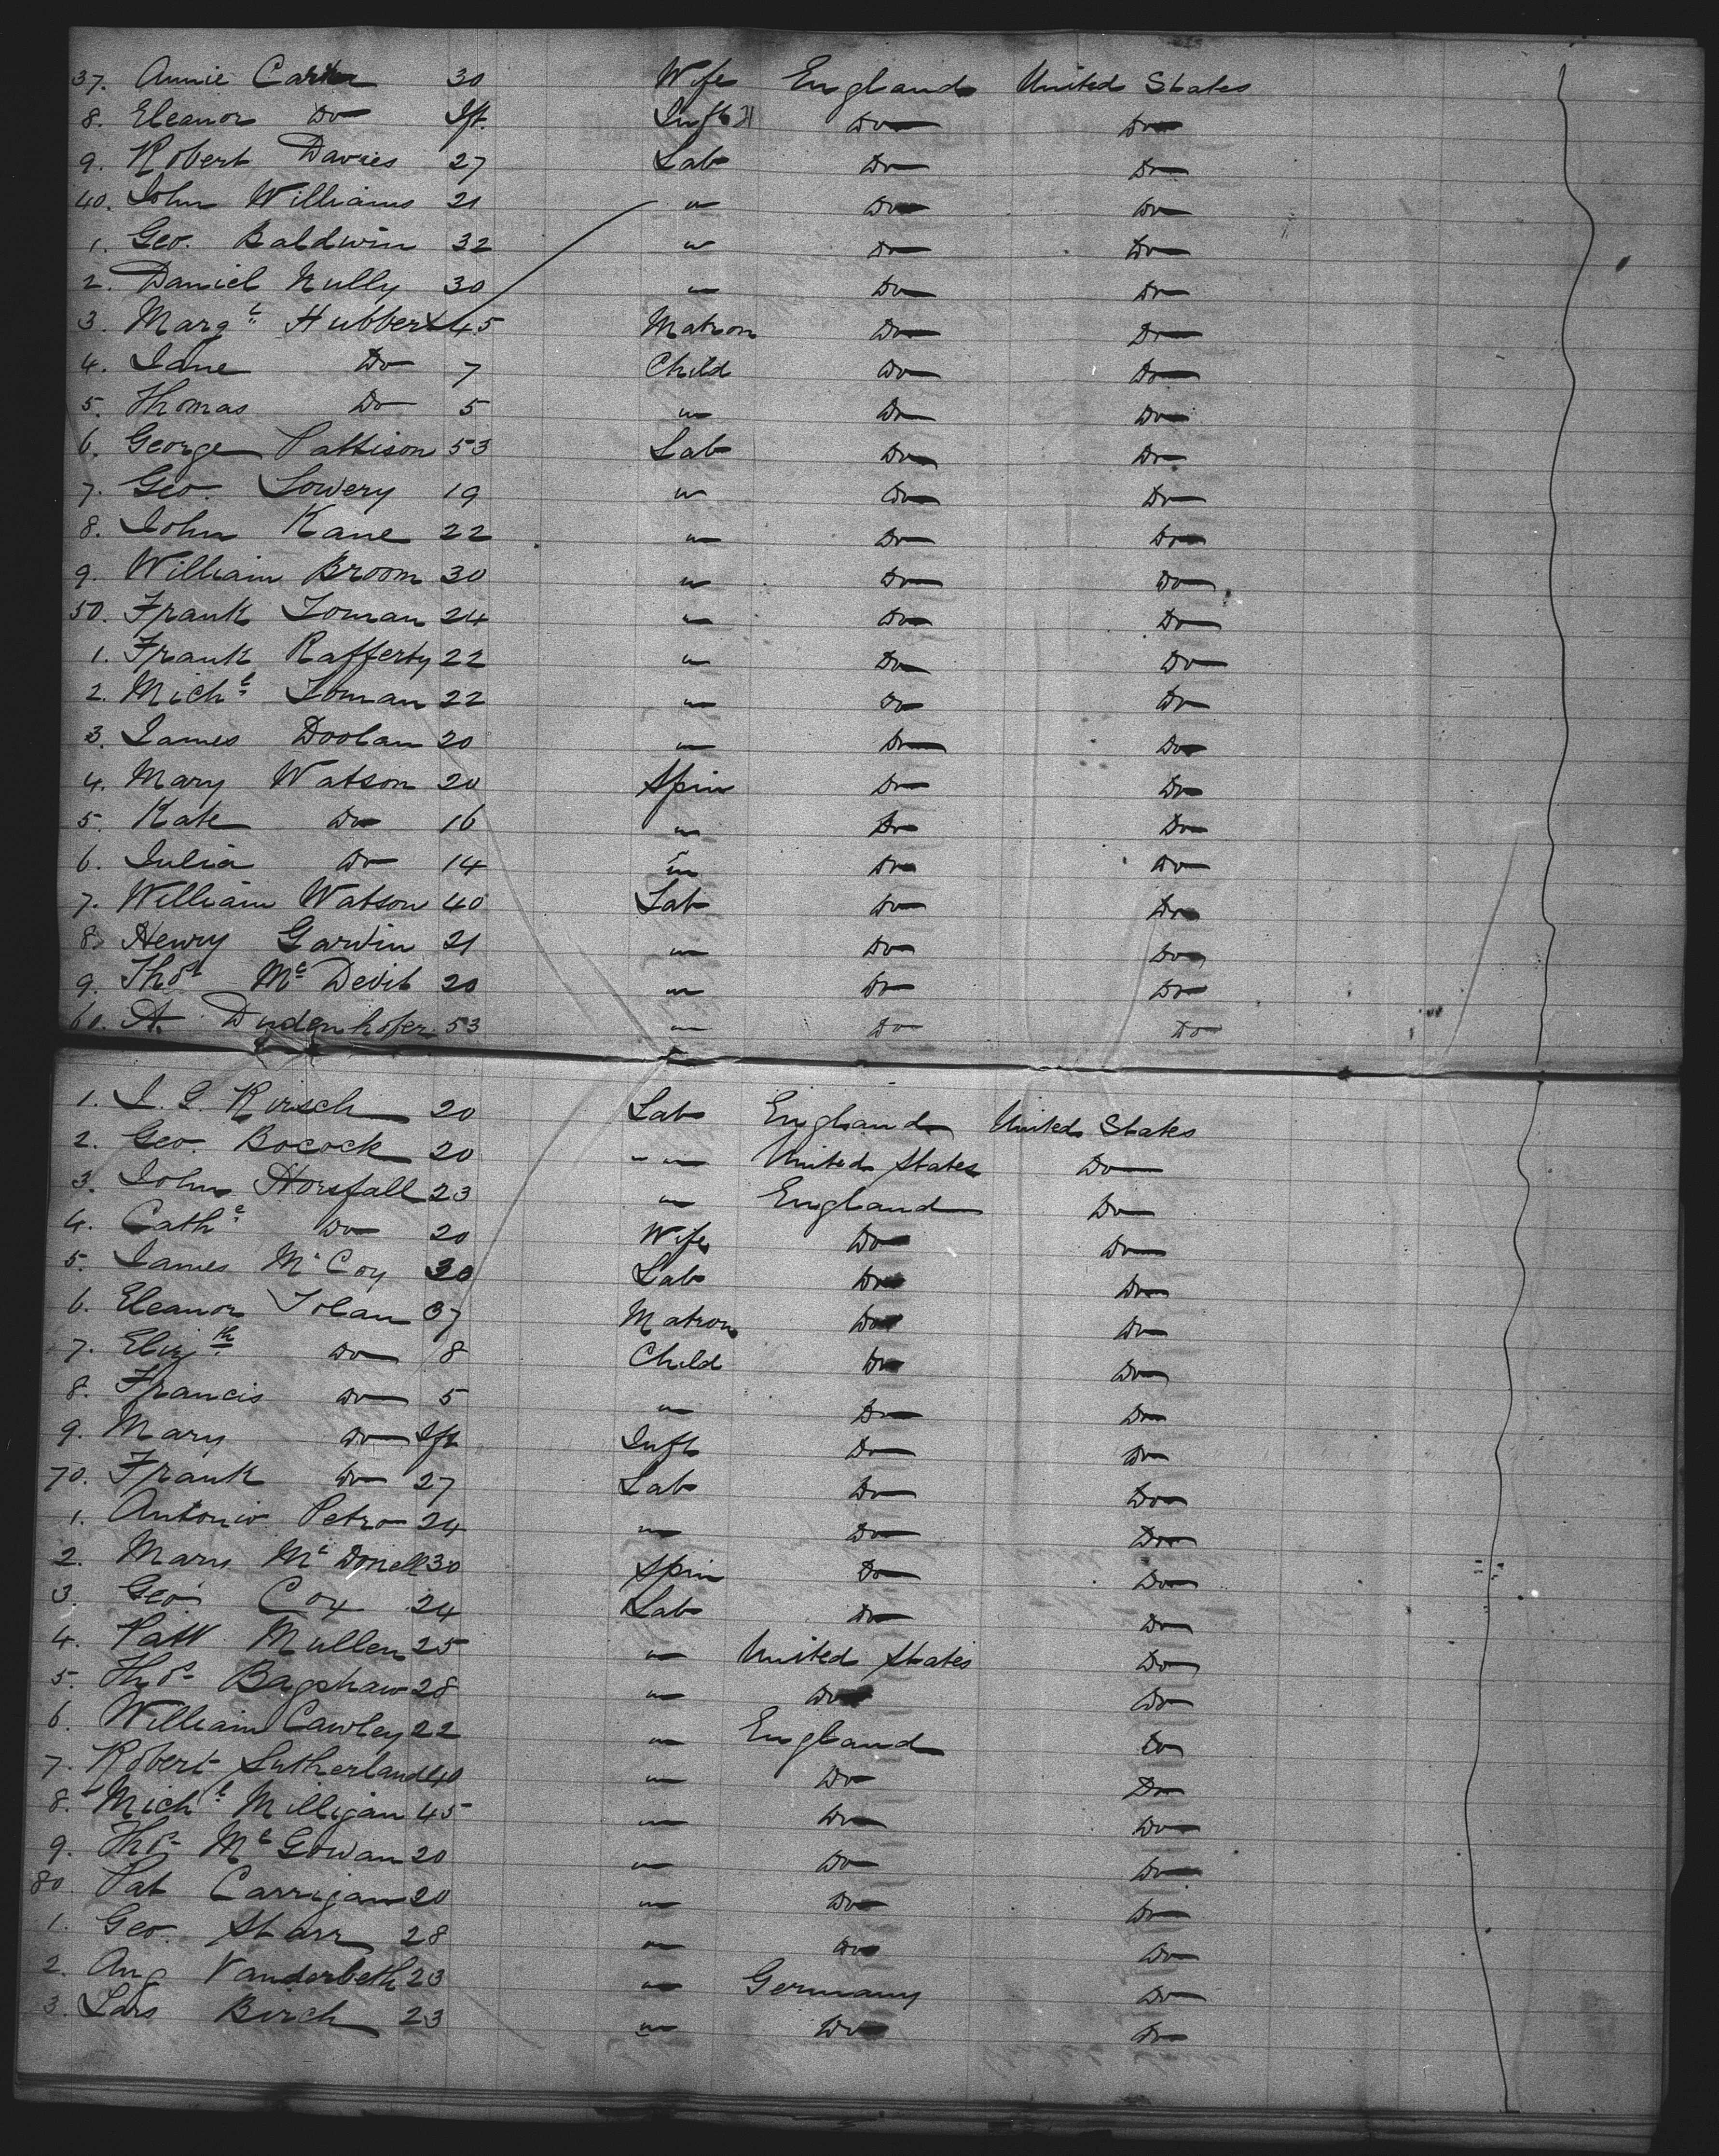 37. Annie Carter 30 Wife England United States
8. Eleanor Do Ift. Inft Do Do
9. Robert Davies 27 Lab Do Do
40. John Williams 21 " Do Do
1. Geo. Baldwin 32 " Do Do
2. Daniel Nully 30 " Do Do
3. Margt Hubbert 45 Matron Do Do
4. Jane Do 7 Child Do Do
5. Thomas Do 5 " Do Do
6. George Pattison 53 Lab Do Do
7. Geo. Lowery 19 " Do Do
8. John Kane 22 " Do Do
9. William Broom 30 " Do Do
50. Frank Loman 24 " Do Do
1. Frank Rafferty 22 " Do Do
2. Michl Loman 22 " Do Do
3. James Doolan 20 " Do Do
4. Mary Watson 20 Spin Do Do
5. Kate Do 16 " Do Do
6. Julia Do 14 " Do Do
7. William Watson 40 Lab Do Do
8. Henry Garvin 21 " Do Do
9. Thos Mc Devit 20 " Do Do
60. A. Dudenhofer 53 " Do Do
1. J. G. Kirsch 20 Lab England United States
2. Geo. Bocock 20 " " United States Do
3. John Horsfall 23 " England Do
4. Cathe Do 20 Wife Do Do
5. James McCoy 30 Lab Do Do
6. Eleanor Tolan 37 Matron Do Do
7. Elizth Do 8 Child Do Do
8. Francis Do 5 " Do Do
9. Mary Do Ift Inft Do Do
70. Frank Do 27 Lab Do Do
1. Antonio Petro 24 " Do Do
2. Mary Mc Donell 30 Spin Do Do
3. Geo. Cox 24 Lab Do Do
4. Patk Mullen 25 " United States Do
5. Thos Bagshaw 28 " Do Do
6. William Cawley 22 " England Do
7. Robert Sutherland 40 " Do Do
8. Michl Milligan 45 " Do Do
9. Thos Mc Gowan 20 " Do Do
80. Pat Carrigan 20 " Do Do
1. Geo. Starr 28 " Do Do
2. Aug Vanderbeth 23 " Germany Do
3. Lars Birch 23 " Do Do